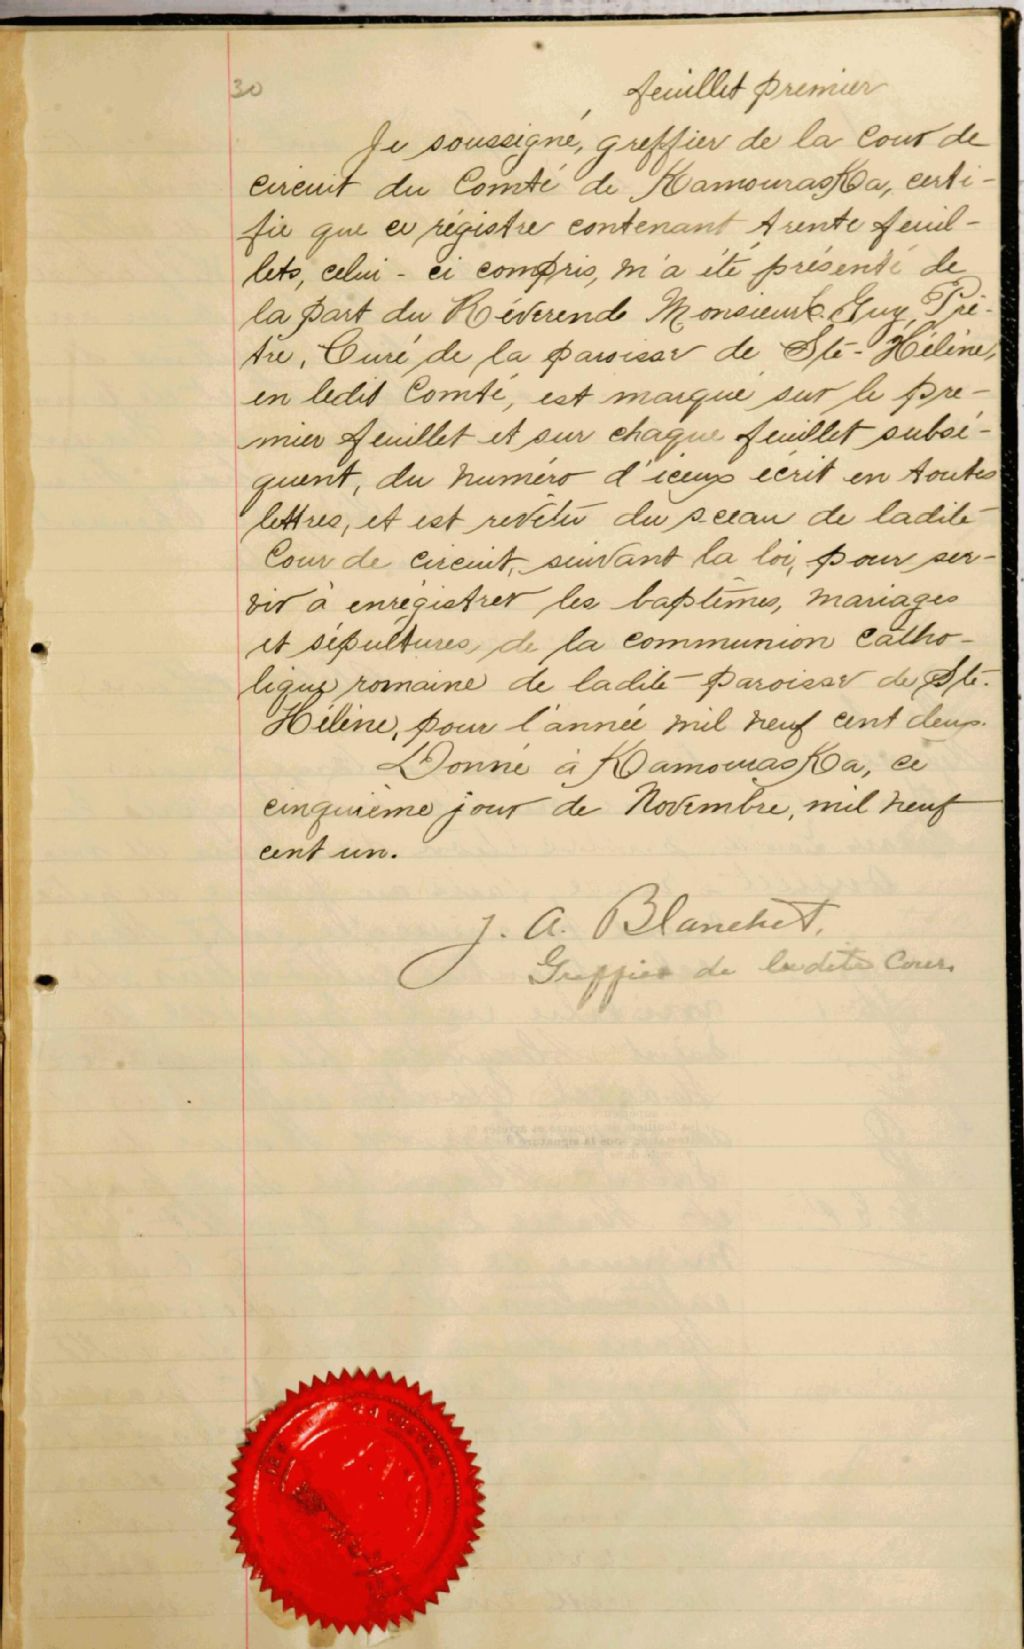 30
feuillet premier
Je soussigné, greffier de la Cour de
circuit du Comté de Kamouraska, certi-
fie que ce régistre contenant trente feuil-
lets, celui-ci compris, m'a été présenté de
la part du Révérend Monsieur Guy, Prê-
tre, Curé de la paroisse de Ste-Hélène,
en ledit Comté, est marqué sur le pre-
mier feuillet et sur chaque feuillet subsé-
quent, du numéro d'iceux écrit en toutes
lettres, et est revêtu du sceau de ladite
Cour de circuit, suivant la loi, pour ser-
vir à enrégistrer les baptêmes, mariages
et sépultures, de la communion catho-
lique romaine de ladite paroisse de Ste-
Hélène, pour l'année mil neuf cent deux.
Donné à Kamouraska, ce
cinquième jour de Novembre, mil neuf
cent un.
J. A. Blanchet,
Greffier de ladite Cour.